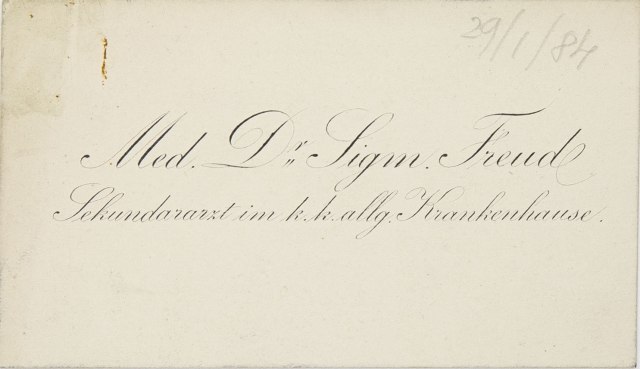 29/1/84
Med. Dr. Sigm. Freud
Sekundararzt im k. k. allg. Krankenhause.